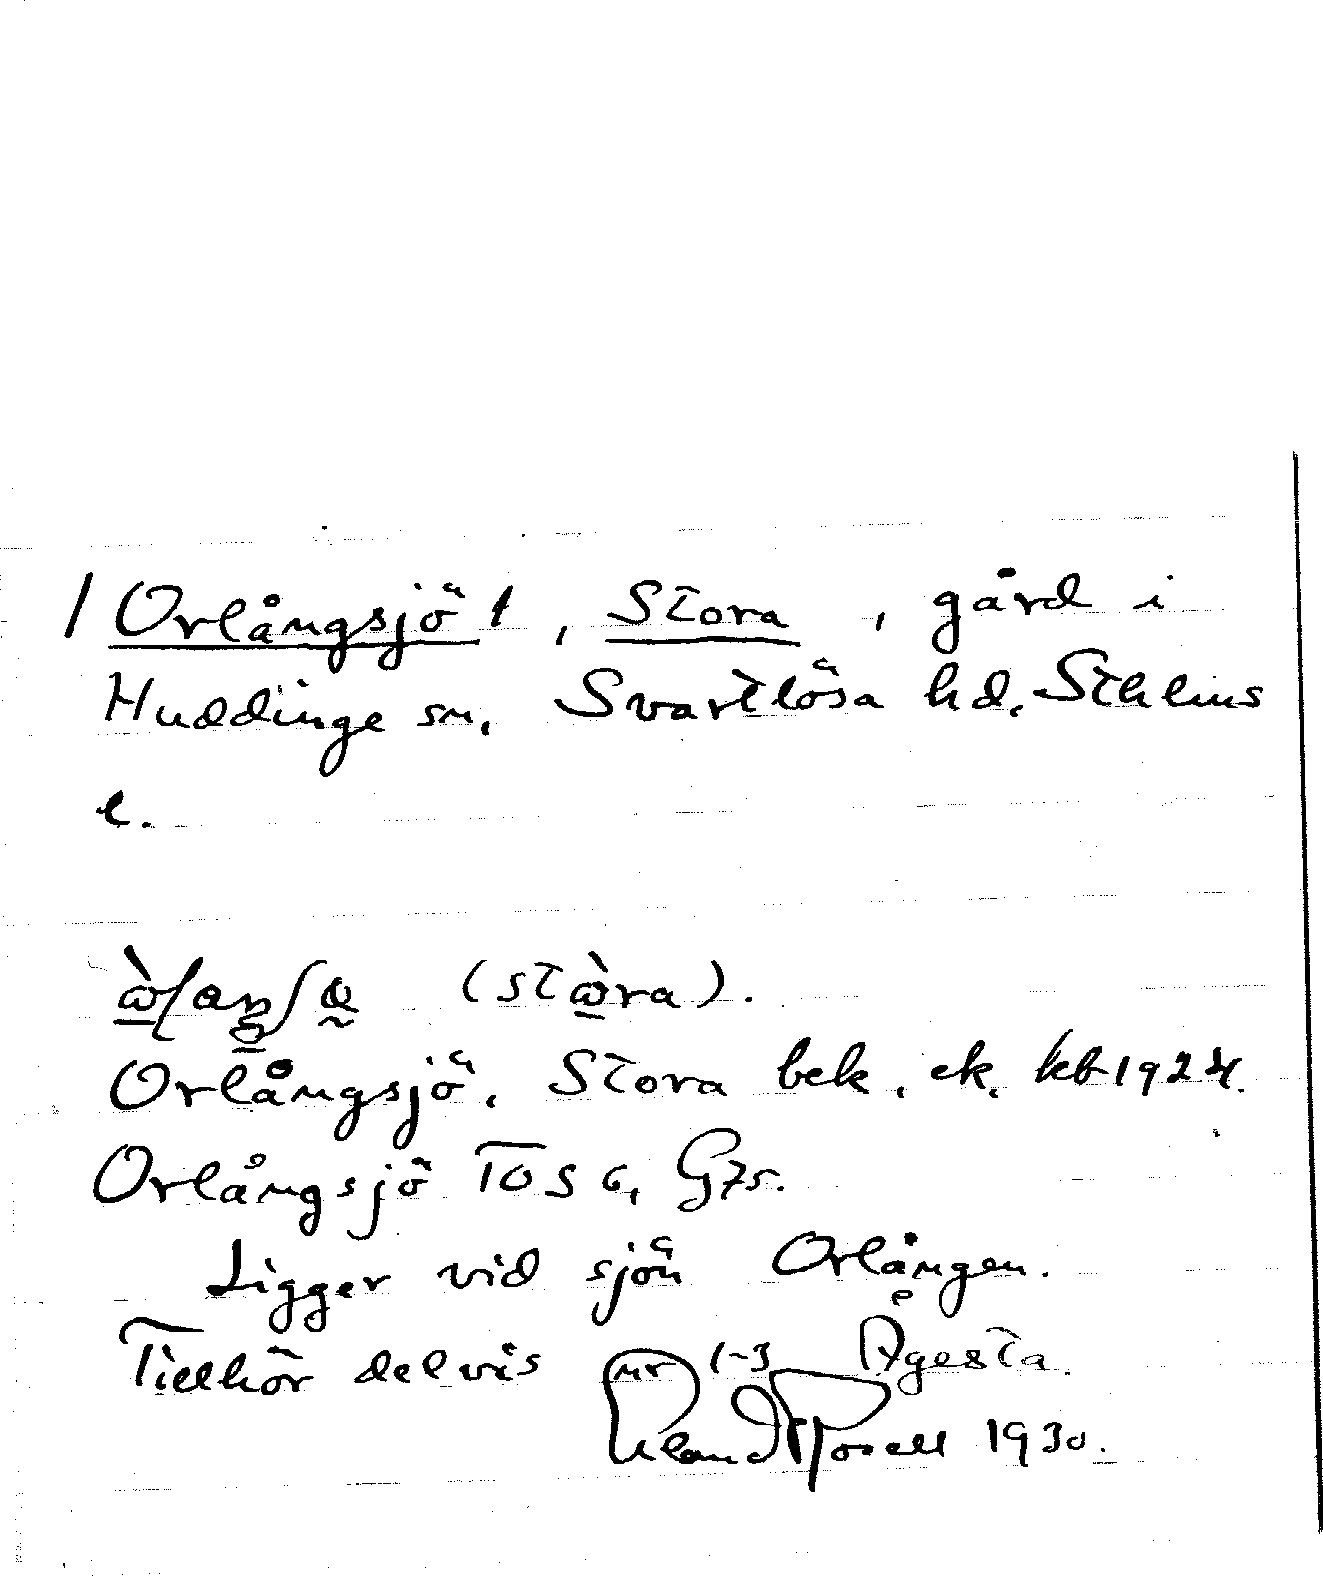 / Orlångsjö /, Stora, gård i
Huddinge sn, Svartlösa hd, Sthlms
l.
(stὼra).
Orlångsjö, Stora bek, ek, kb 1924.
Orlångsjö TOS 6, G75.
Ligger vid sjön Orlången.
Tillhör delvis nr 1-3 Ågesta.
Erland Rosell 1930.